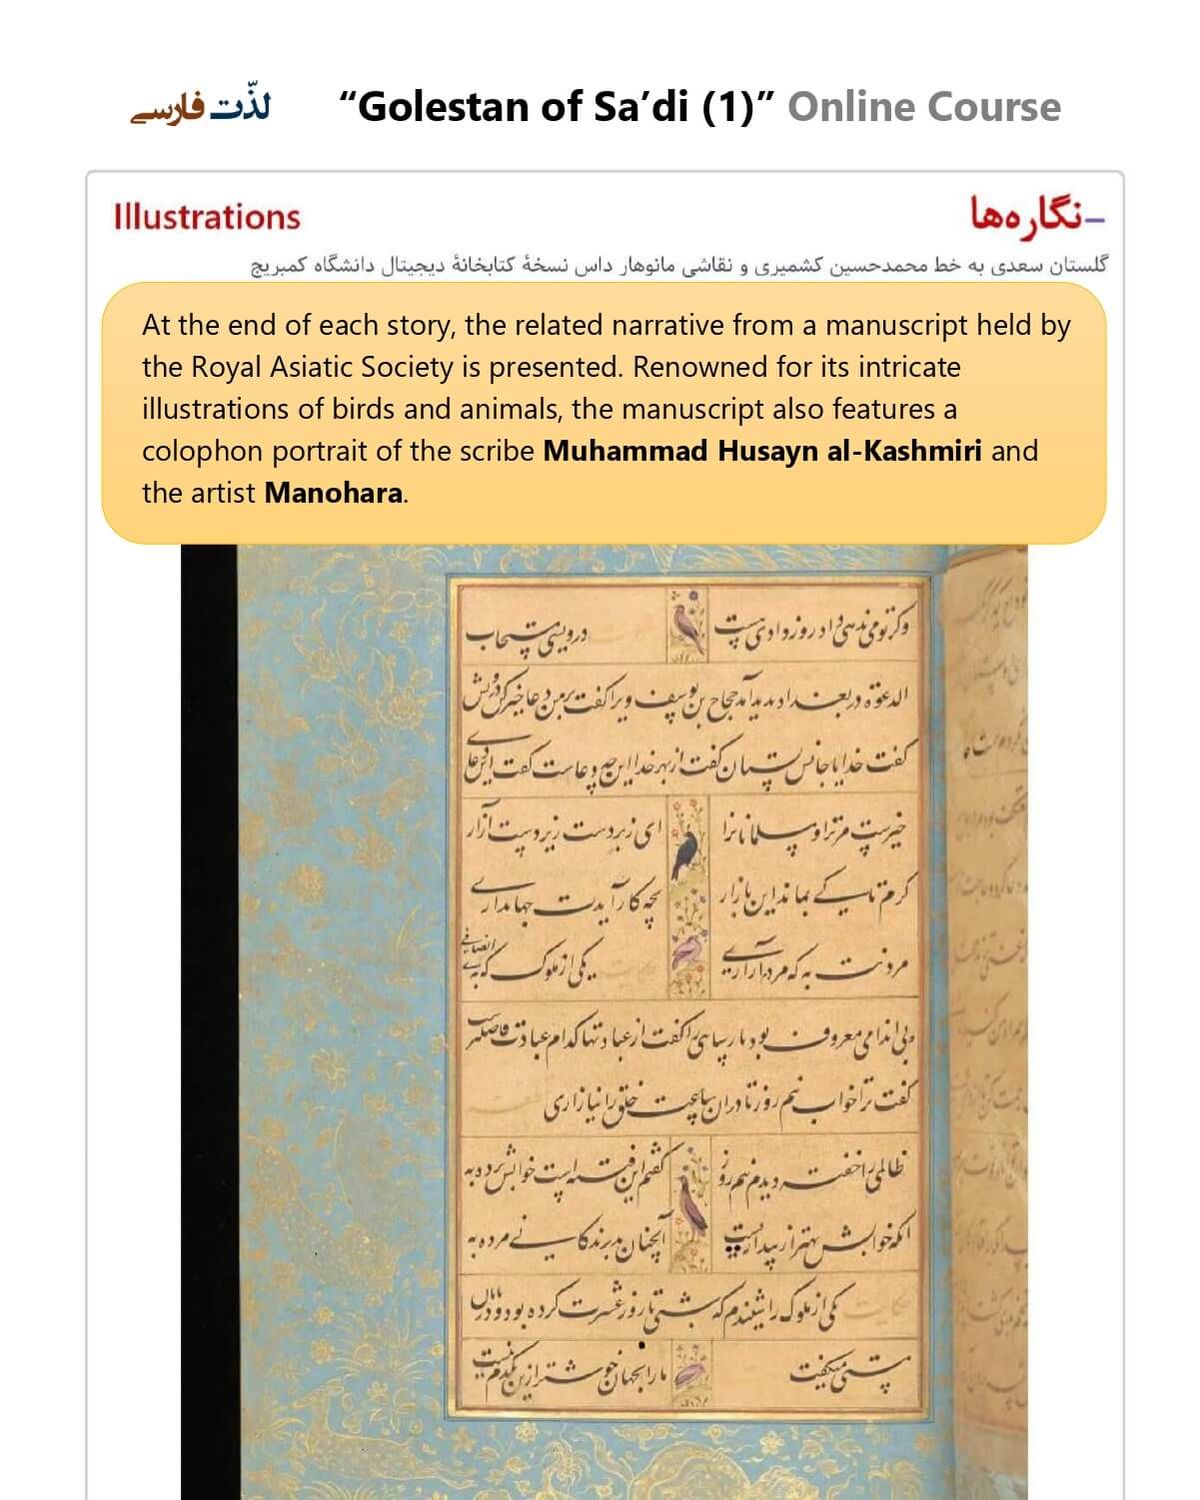 لذّت فارسی
“Golestan of Sa’di (1)” Online Course
Illustrations
–نگاره‌ها
گلستان سعدی به خط محمدحسین کشمیری و نقاشی مانوهار داس نسخهٔ کتابخانهٔ دیجیتال دانشگاه کمبریج
At the end of each story, the related narrative from a manuscript held by
the Royal Asiatic Society is presented. Renowned for its intricate
illustrations of birds and animals, the manuscript also features a
colophon portrait of the scribe Muhammad Husayn al-Kashmiri and
the artist Manohara.
وگر تو می ندهی داد روز دادی هست درویشی مستجاب
الدعوة در بغداد پدید آمد حجاج بن یوسف ویرا گفت بر من دعا خیر کن درویش
گفت خدایا جانش بستان گفت از بهر خدا این چه دعاست گفت این دعای
خیرست مر ترا و مسلمانانرا ای زبردست زیردست آزار
گرم تا کی بماند این بازار بچه کار آیدت جهانداری
مردنت به که مردم آزاری یکی از ملوک که به بی انصافی
و بی اندامی معروف بود پارسایی را گفت از عبادتها کدام عبادت فاضلتر
گفت ترا خواب نیم روز تا در آن ساعت خلق را نیازاری
ظالمی را خفته دیدم نیم روز گفتم این فتنه است خوابش برده به
آنکه خوابش بهتر از بیداریست آنچنان بد زندگانی مرده به
حکایت یکی از ملوک را شنیدم که شبی تا روز عشرت کرده بود و در پایان
مستی میگفت ما را بجهان خوشتر ازین یکدم نیست